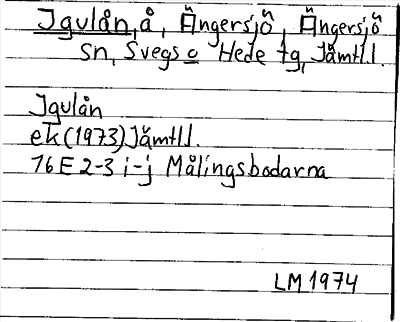 Igulån, å, Ängersjö, Ängersjö
sn, Svegs o Hede tg, Jämtl.l.
Igulån
ek (1973) Jämtl.l.
16 E 2-3 i-j Målingsbodarna
LM 1974